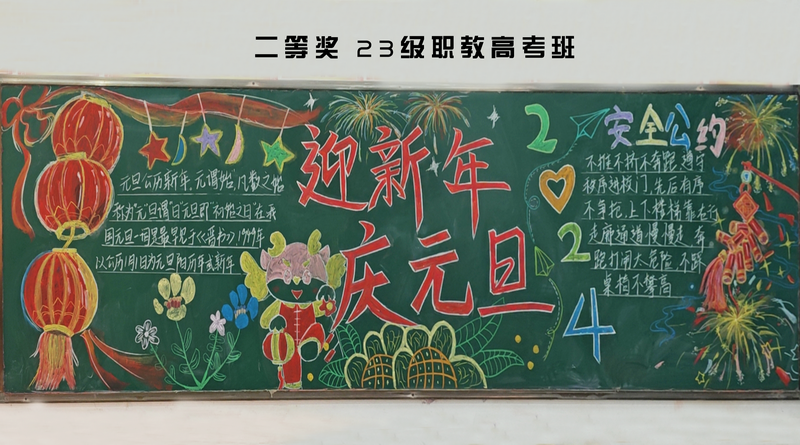 二等奖 23级职教高考班
元旦公历新年,元谓始,凡数之始
称为"元"旦谓"日"元旦即"初始之日"在我
国元旦一词最早见于《晋书》1949年
以公历1月1日为元旦阳历年或新年
迎新年
庆元旦
2
2
4
安全公约
不推不挤不奔跑,遵守
秩序进校门,先后有序
不争抢,上下楼梯靠右行
走廊通道慢慢走,奔
跑打闹太危险,不跨
桌椅不攀高